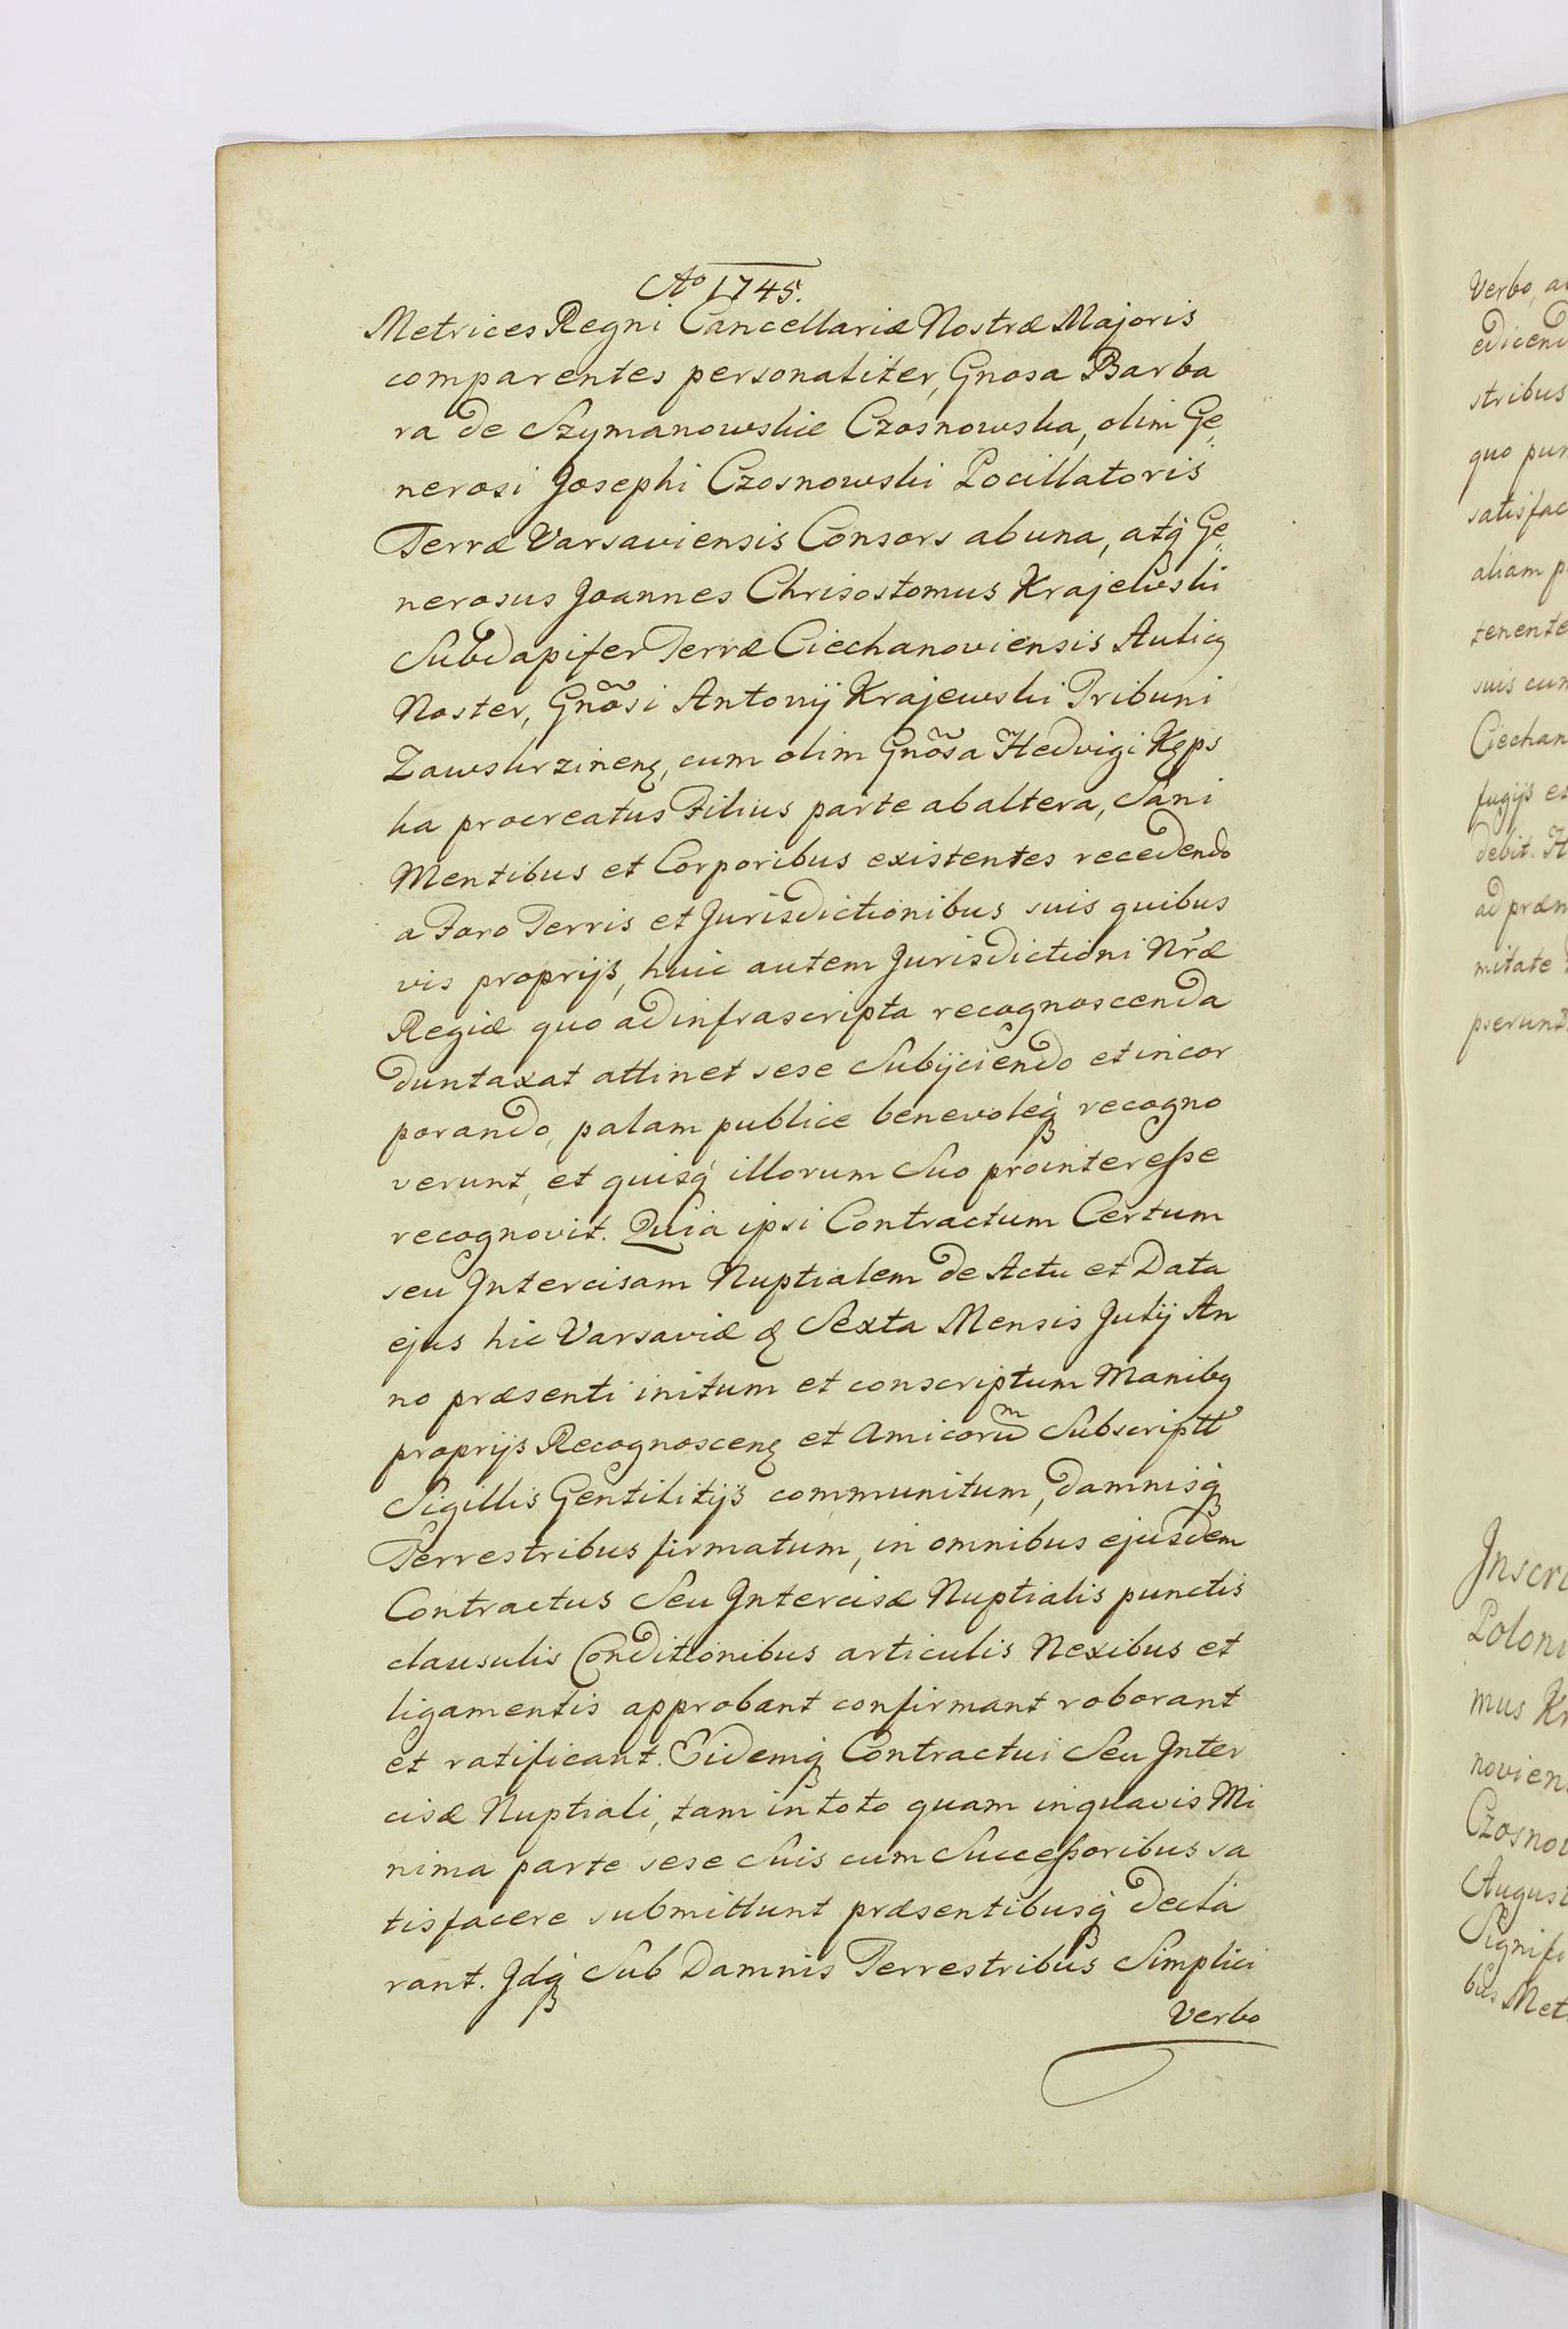 Aº 1745.
Metrices Regni Cancellariæ Nostræ Majoris
comparentes personaliter, Gnosa Barba
ra de Szymanowskie Czosnowska, olim Ge„
nerosi Josephi Czosnowski Pocillatoris
Terræ Varsaviensis Consors ab una, atq́ Ge„
nerosus Joannes Chrisostomus Krajewski
Subdapifer Terræ Ciechanoviensis Aulicꝯ
Noster, Gnõsi Antonij Krajewski Tribuni
Zawskrzinenꝫ, cum olim Gnõsa Hedvigi Kęps
ka procreatus Filius parte ab altera, Sani
Mentibus et Corporibus existentes recedendo
a Foro Terris et Jurisdictionibus suis quibus
vis proprijs, huic autem Jurisdictioni Nr̃æ
Regiæ quo ad infrascripta recognoscenda
duntaxat attinet sese Subijciendo et incor
porando, palam publice benevoleqꝫ recogno
verunt, et quisq́ illorum Suo pro interesse
recognovit. Quia ipsi Contractum Certum
seu Intercisam Nuptialem de Actu et Data
ejus hic Varsaviæ ꝺ Sexta Mensis Julij An
no præsenti initum et conscriptum Manibꝯ
proprijs Recognoscenꝫ et Amicorum̃ Subscriptt
Sigillis Gentilitijs communitum, damnisqꝫ
Terrestribus firmatum, in omnibus ejusdem
Contractus Seu Intercisæ Nuptialis punctis
clausulis Conditionibus articulis Nexibus et
ligamentis approbant confirmant roborant
et ratificant. Eidemqꝫ Contractui Seu Inter
cisæ Nuptiali, tam in toto quam in quavis Mi
nima parte sese Suis cum Successoribus sa
tisfacere submittunt præsentibusqꝫ decla
rant. Idqꝫ Sub Damnis Terrestribus Simplici
Verbo
Verbo, a
edicen
stribus
quo pu
satisfac
aliam p
tenente
suis cum
Ciechan
fugijs e
debit. H
ad præm
mitate
pserunt
Inscri
Poloni
mus Kr
novien
Czosnow
August
Signifi
bus Met